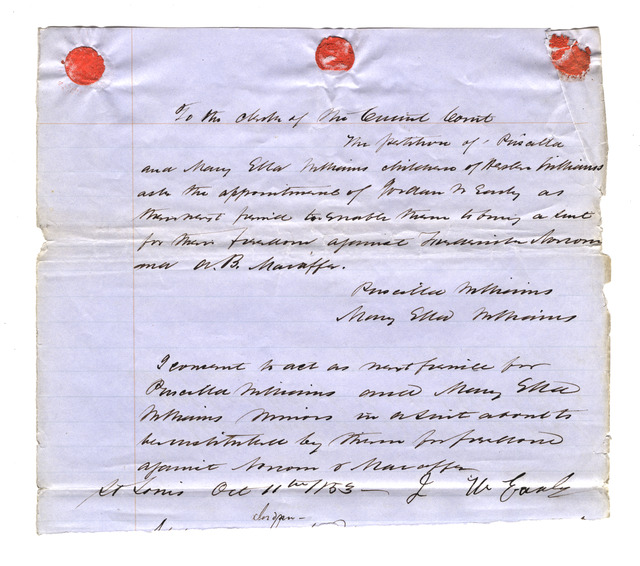 To the clerk of the Circuit Court
The petition of Priscilla
and Mary Ella Williams children of Hester Williams
ask the appointment of Jordan W Early as
their next friend to enable them to bring a suit
for their freedom against Frederick Norcom
and A. B. McAffee.
Priscilla Williams
Mary Ella Williams
I consent to act as next friend for
Priscilla Williams and Mary Ella
Williams minors in a suit about to
be instituted by them for freedom
against Norcom & McAffee
St Louis Oct 11th 1853 J W Early